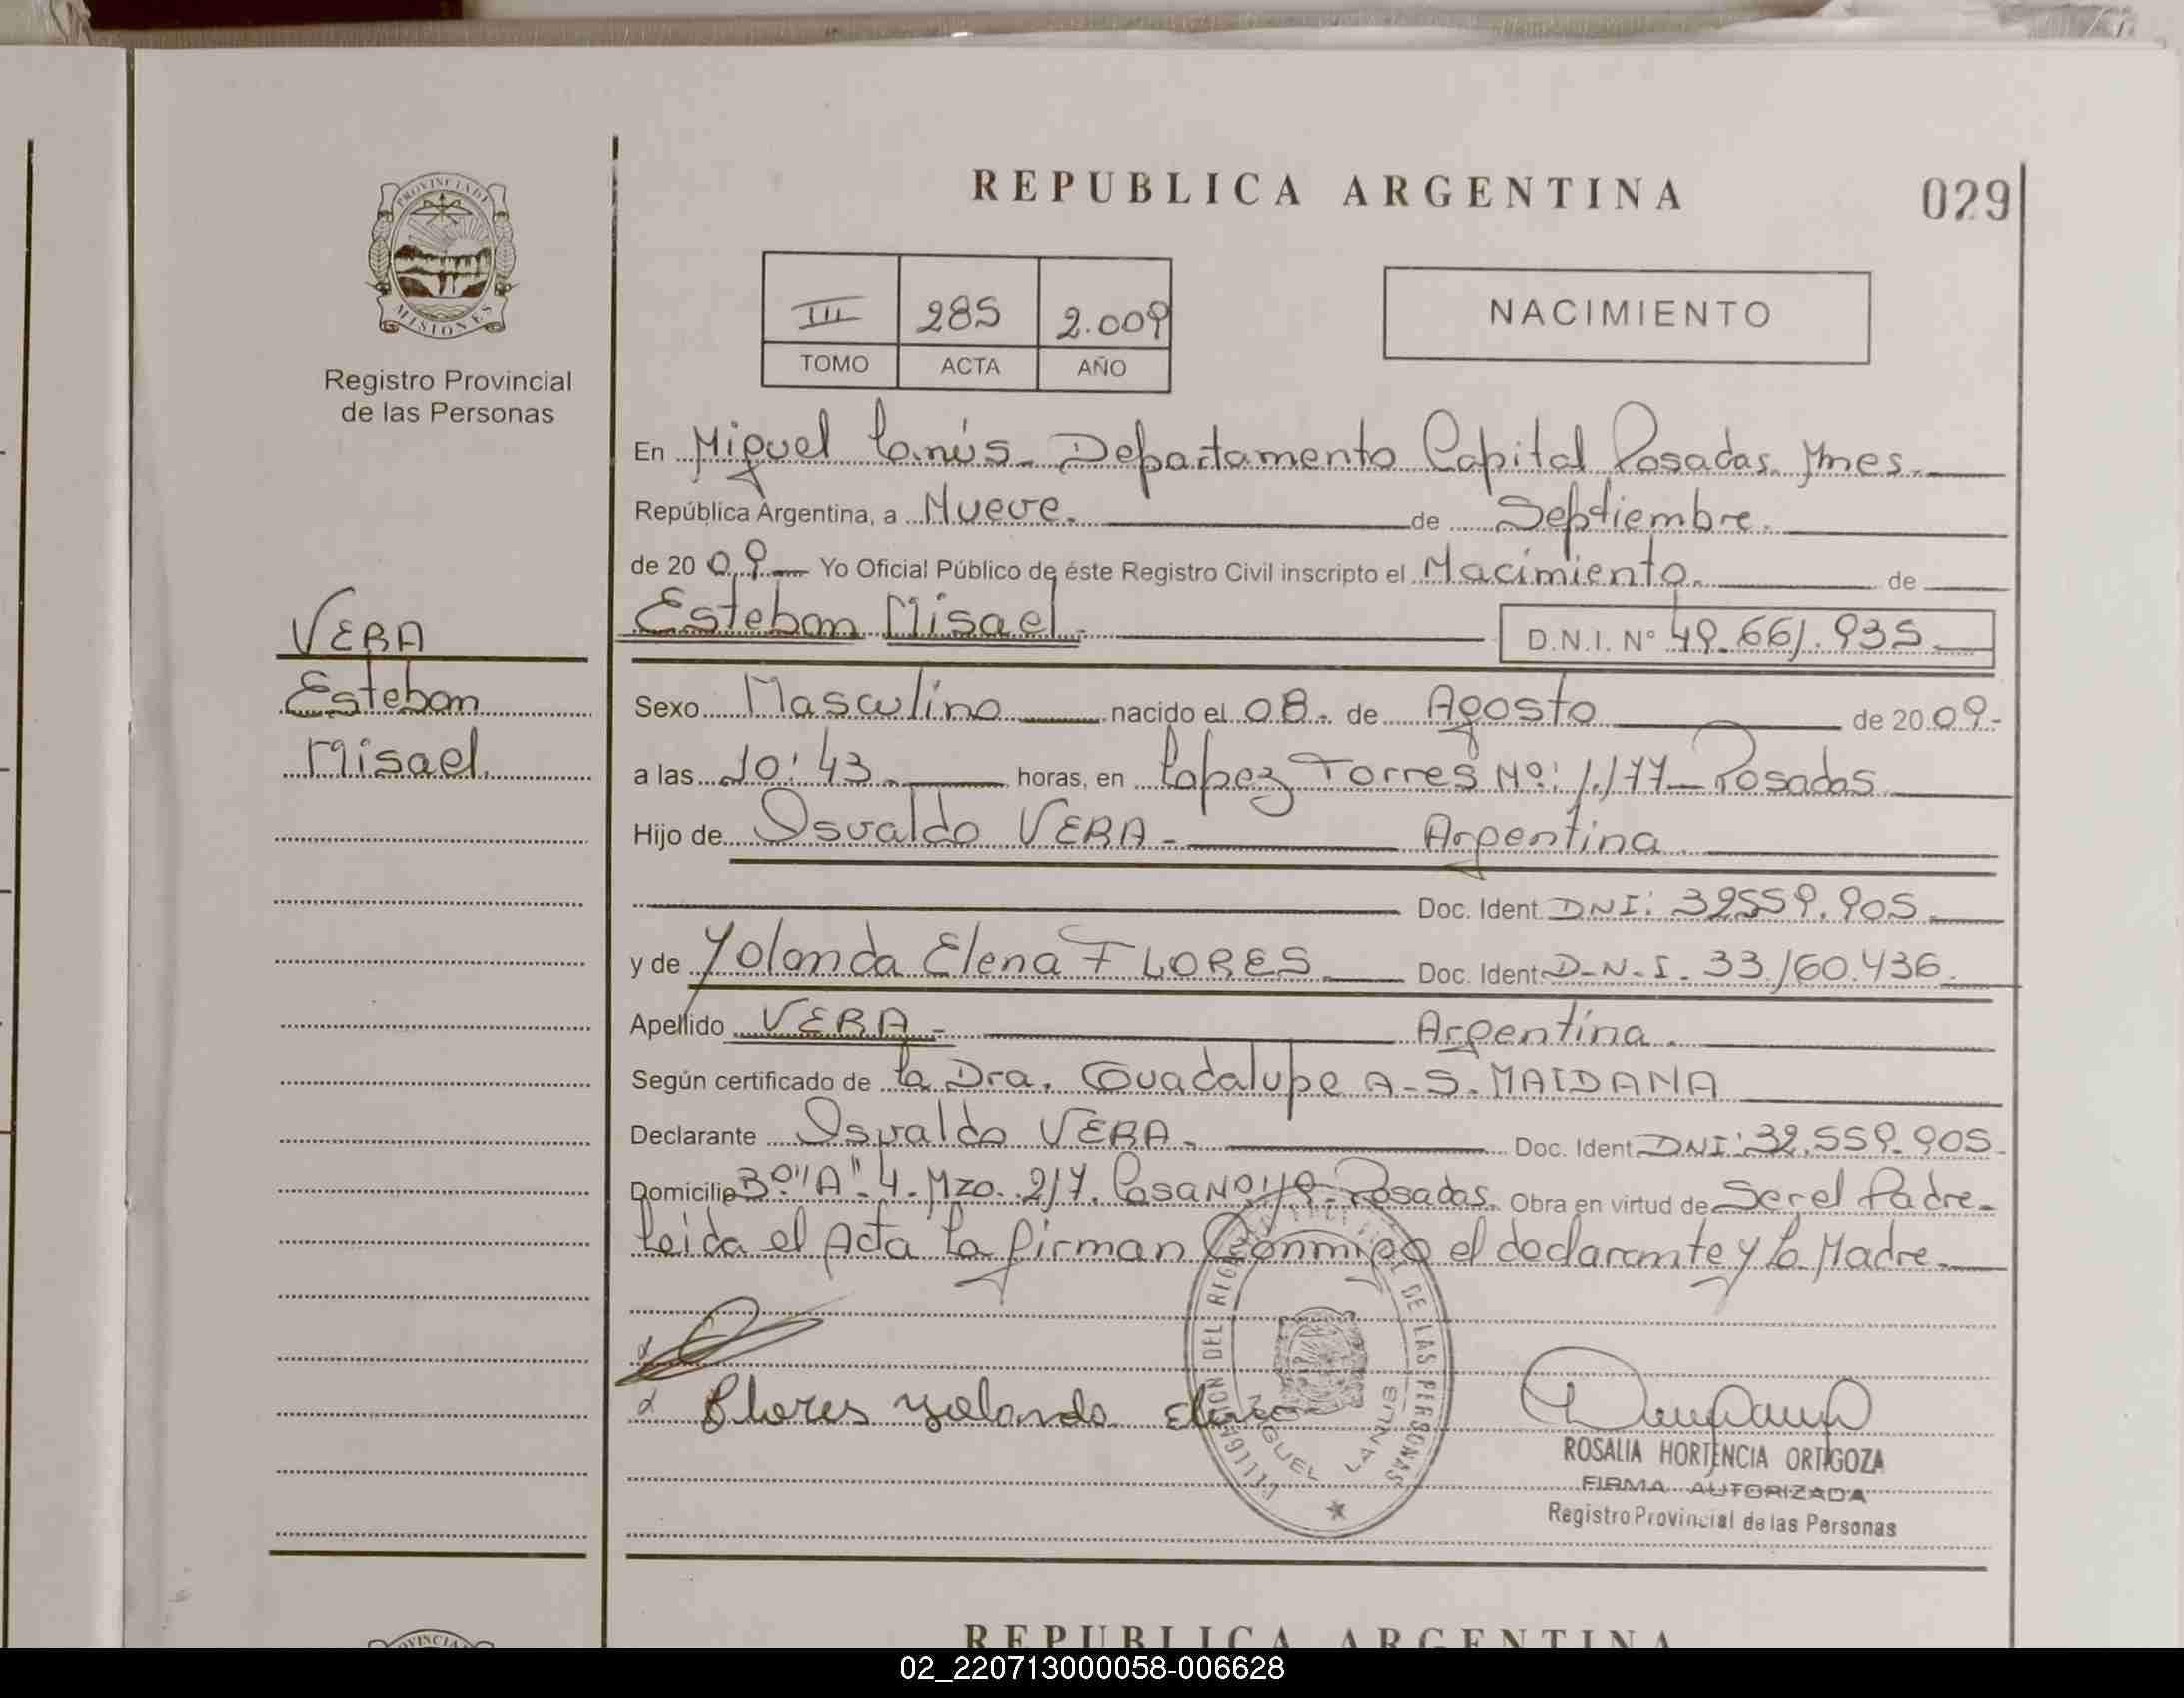 REPUBLICA ARGENTINA
029
PROVINCIA DE
MISIONES
Registro Provincial
de las Personas
III 285 2.009
TOMO ACTA AÑO
NACIMIENTO
En Miguel Lanús. Departamento Capital Posadas. Mnes.
República Argentina, a Nueve. de Septiembre.
de 20 09 Yo Oficial Público de éste Registro Civil inscripto el Nacimiento. de
Esteban Misael. D.N.I. N° 49.661.935
VERA
Esteban
Misael.
Sexo Masculino nacido el 08. de Agosto de 20 09.
a las 10:43 horas, en Lopez Torres Nº: 1.177 Posadas
Hijo de Osvaldo VERA - Argentina
Doc. Ident. DNI: 32559.905
y de Yolanda Elena FLORES Doc. Ident. D.N.I. 33.160.436.
Apellido VERA - Argentina.
Según certificado de la Dra. Guadalupe A. S. MAIDANA
Declarante Osvaldo VERA. Doc. Ident. DNI: 32.559.905.
Domicilio Bº "A" 4. Mzo. 217. Casa Nº Posadas. Obra en virtud de Ser el Padre.
Leida el Acta la firman Conmigo el declarante y la Madre.
Flores yolanda elena
DEL REGISTRO PROVINCIAL DE LAS PERSONAS
MIGUEL LANUS
ROSALIA HORTENCIA ORTIGOZA
FIRMA AUTORIZADA
Registro Provincial de las Personas
REPUBLICA ARGENTINA
02_220713000058-006628